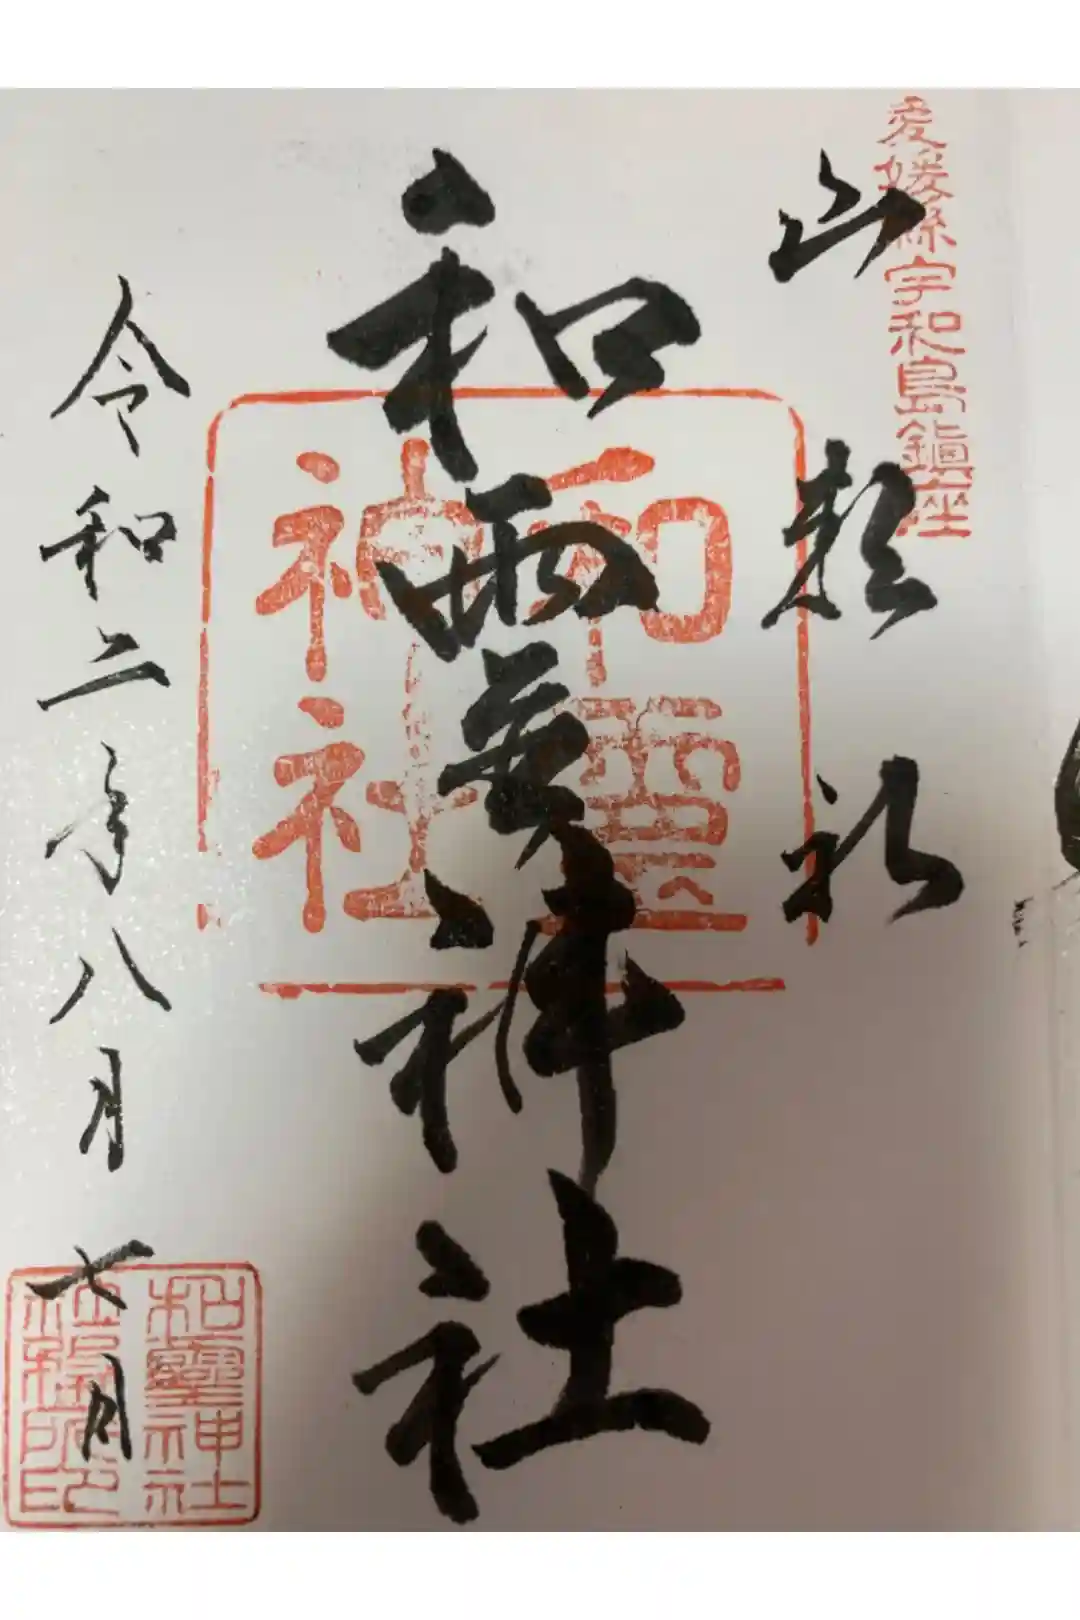 愛媛縣宇和島鎮座
山頼和霊神社
和霊神社
和霊神社
令和二年八月七日
和靈神社
社務所印